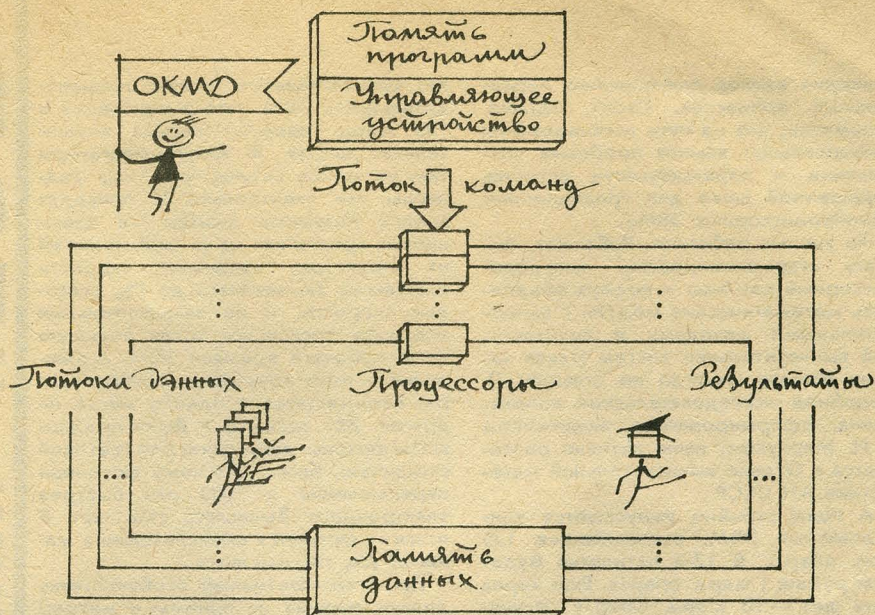 ОКМД
Память
программ
Управляющее
устройство
Поток команд
Потоки данных
Процессоры
Результаты
Память
данных